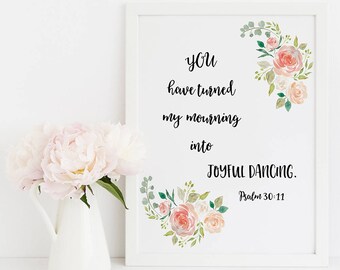 YOU
have turned
my mourning
into
JOYFUL DANCING.
Psalm 30:11